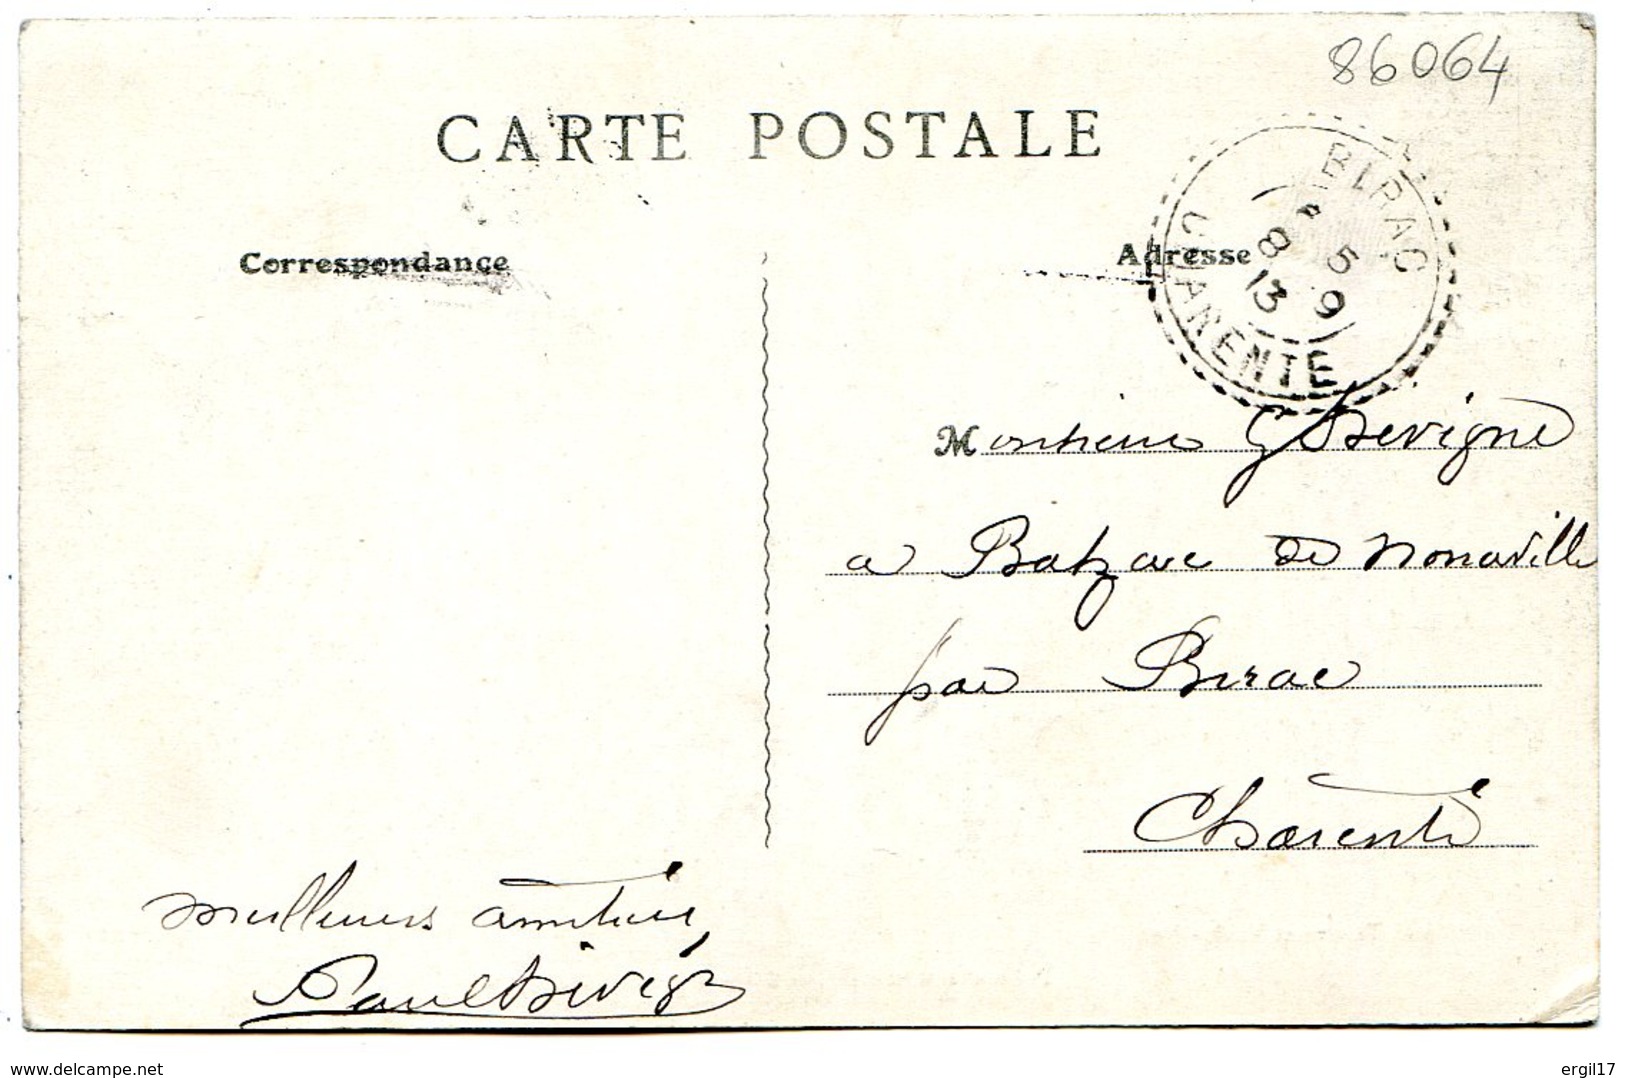 86064
CARTE POSTALE
Correspondance
Adresse
BIRAC
8 5
13 9
CHARENTE
Monsieur G Devigne
a Balzac de Nonaville
par Birac
Charente
Meilleures amitiés
Paul Devigne
www.delcampe.net
ergil17